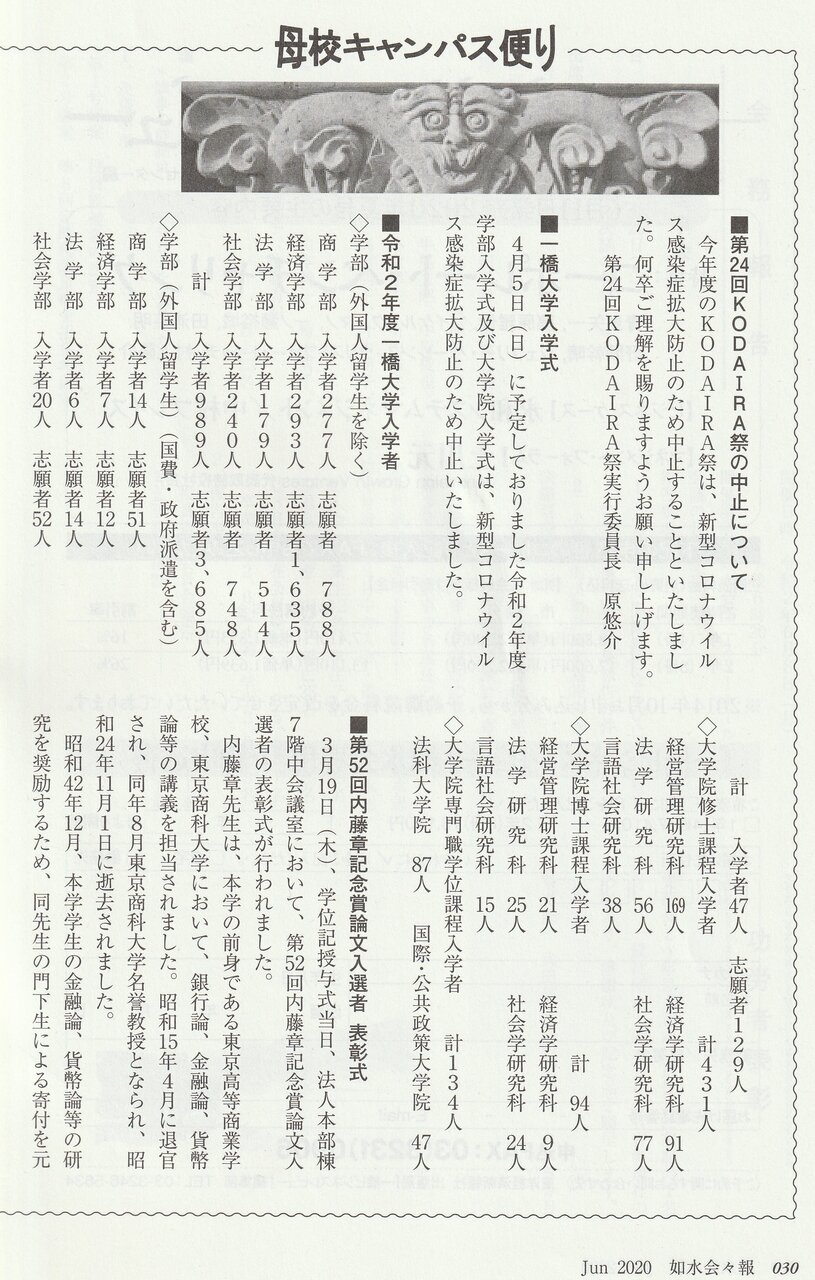 母校キャンパス便り
■第24回KODAIRA祭の中止について
今年度のKODAIRA祭は、新型コロナウイル
ス感染症拡大防止のため中止することといたしまし
た。何卒ご理解を賜りますようお願い申し上げます。
第24回KODAIRA祭実行委員長　原悠介
■一橋大学入学式
4月5日（日）に予定しておりました令和2年度
学部入学式及び大学院入学式は、新型コロナウイル
ス感染症拡大防止のため中止いたしました。
■令和2年度一橋大学入学者
◇学部（外国人留学生を除く）
商　学　部　入学者277人　志願者　788人
経済学部　入学者293人　志願者1、635人
法　学　部　入学者179人　志願者　514人
社会学部　入学者240人　志願者　748人
計　入学者989人　志願者3、685人
◇学部（外国人留学生）（国費・政府派遣を含む）
商　学　部　入学者14人　志願者51人
経済学部　入学者7人　志願者12人
法　学　部　入学者6人　志願者14人
社会学部　入学者20人　志願者52人
計　入学者47人　志願者129人
◇大学院修士課程入学者　計431人
経営管理研究科　169人　経済学研究科　91人
法　学　研　究　科　56人　社会学研究科　77人
言語社会研究科　38人
◇大学院博士課程入学者　計　94人
経営管理研究科　21人　経済学研究科　9人
法　学　研　究　科　25人　社会学研究科　24人
言語社会研究科　15人
◇大学院専門職学位課程入学者　計134人
法科大学院　87人　国際・公共政策大学院　47人
■第52回内藤章記念賞論文入選者　表彰式
3月19日（木）、学位記授与式当日、法人本部棟
7階中会議室において、第52回内藤章記念賞論文入
選者の表彰式が行われました。
内藤章先生は、本学の前身である東京高等商業学
校、東京商科大学において、銀行論、金融論、貨幣
論等の講義を担当されました。昭和15年4月に退官
され、同年8月東京商科大学名誉教授となられ、昭
和24年11月1日に逝去されました。
昭和42年12月、本学学生の金融論、貨幣論等の研
究を奨励するため、同先生の門下生による寄付を元
Jun 2020　如水会々報　030